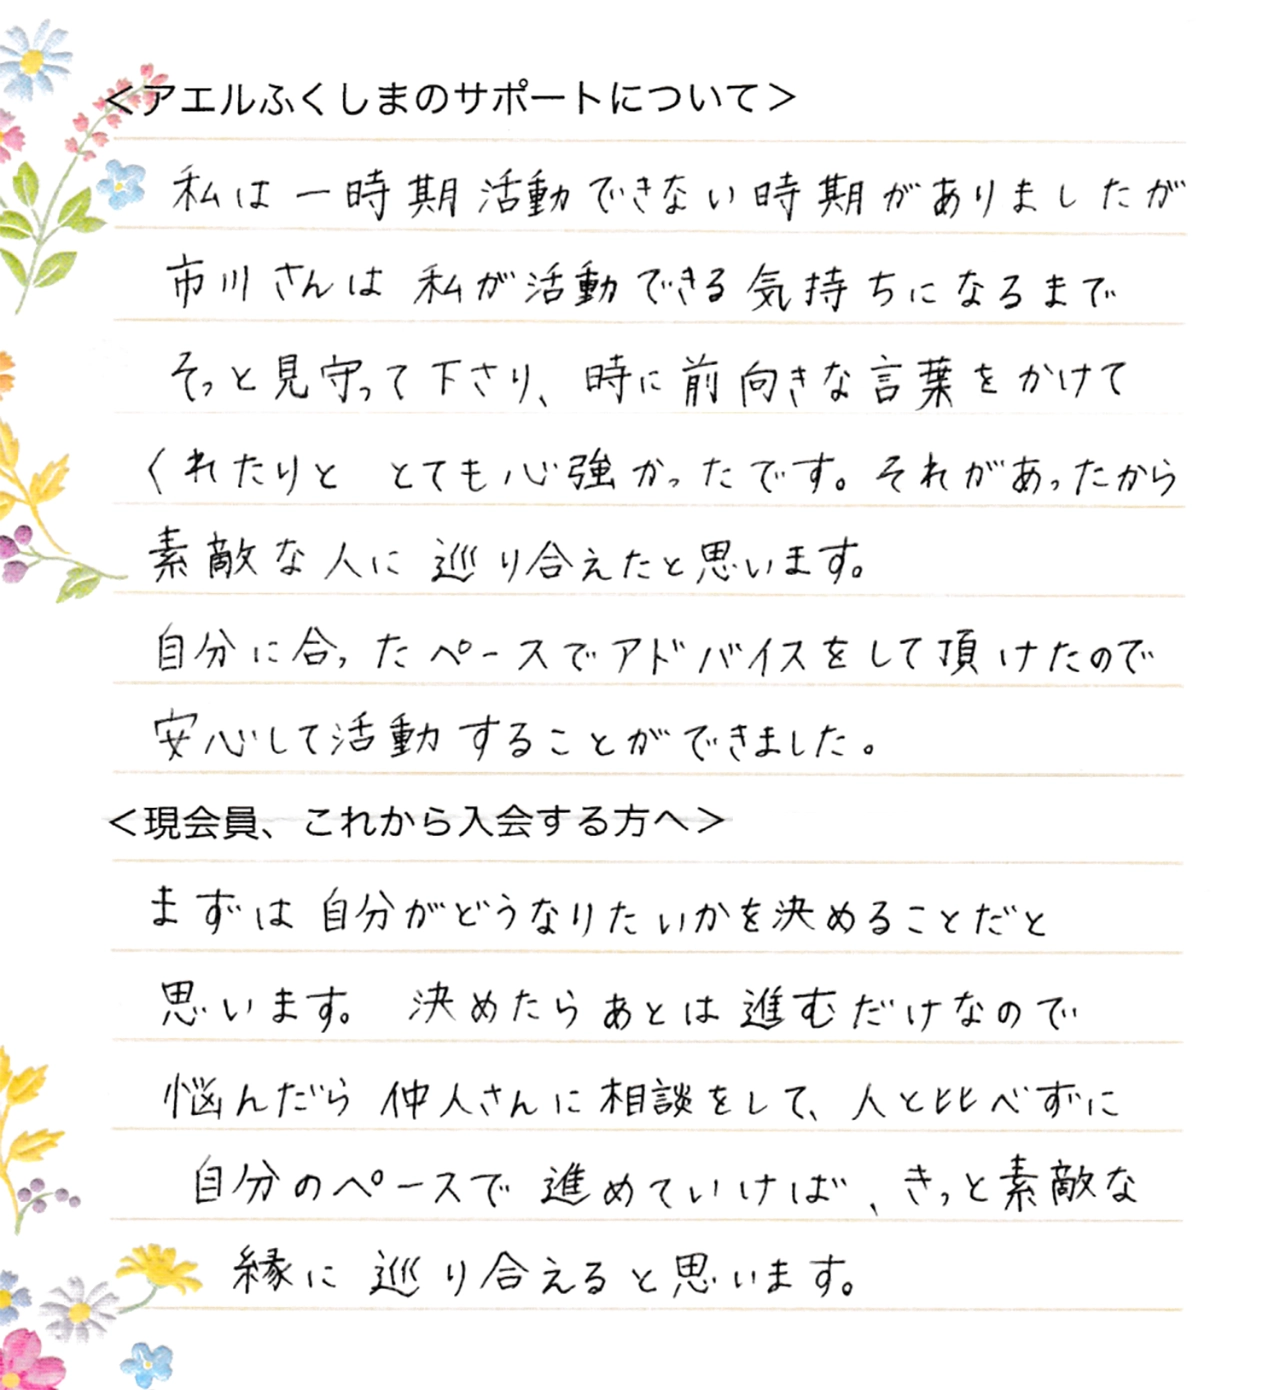 ＜アエルふくしまのサポートについて＞
私は一時期活動できない時期がありましたが
市川さんは 私が活動できる気持ちになるまで
そっと見守って下さり、時に前向きな言葉をかけて
くれたりと とても心強かったです。それがあったから
素敵な人に 巡り合えたと思います。
自分に合ったペースでアドバイスをして頂けたので
安心して活動することができました。
＜現会員、これから入会する方へ＞
まずは 自分がどうなりたいかを決めることだと
思います。 決めたらあとは進むだけなので
悩んだら 仲人さんに相談をして、人と比べずに
自分のペースで 進めていけば、きっと素敵な
縁に 巡り合えると思います。